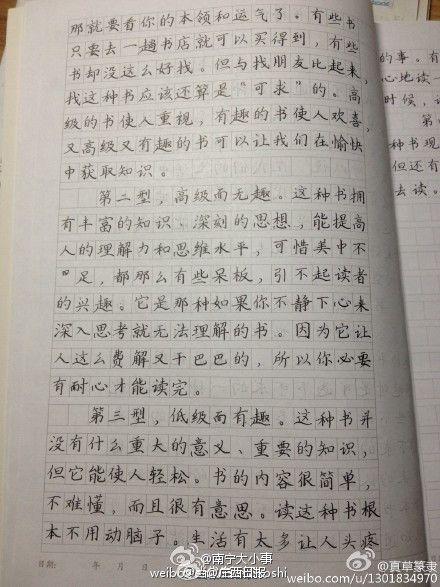 那就要看你的本领和运气了。有些书
只要去一趟书店就可以买得到,有些
书却没这么好找。但与找朋友比起来,
我这种书应该还算是“可求”的。高
级的书使人重视,有趣的书使人欢喜,
又高级又有趣的书可以让我们在愉快
中获取知识。
第二型,高级而无趣。这种书拥
有丰富的知识、深刻的思想,能提高
人的理解力和思维水平,可惜美中不
足,都那么有些呆板,引不起读者
的兴趣。它是那种如果你不静下心来
深入思考就无法理解的书。因为它让
人这么费解又干巴巴的,所以你必要
有耐心才能读完。
第三型,低级而有趣。这种书并
没有什么重大的意义、重要的知识,
但它能使人轻松。书的内容很简单,
不难懂,而且很有意思。读这种书根
本不用动脑子。生活有太多让人头疼
的事。有
心地读
时候,
第
种书现
但还有
去读。
日期: 年 月 日
@南宁大小事
@当代生活报
@真草篆隶
weibo.com/u/1301834970